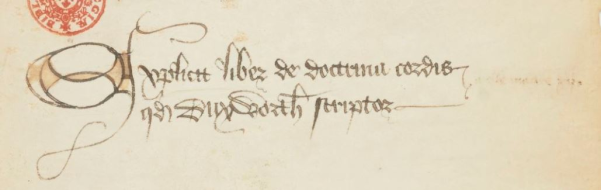 Explicit liber de doctrina cordis
qđ Duxworth scriptor